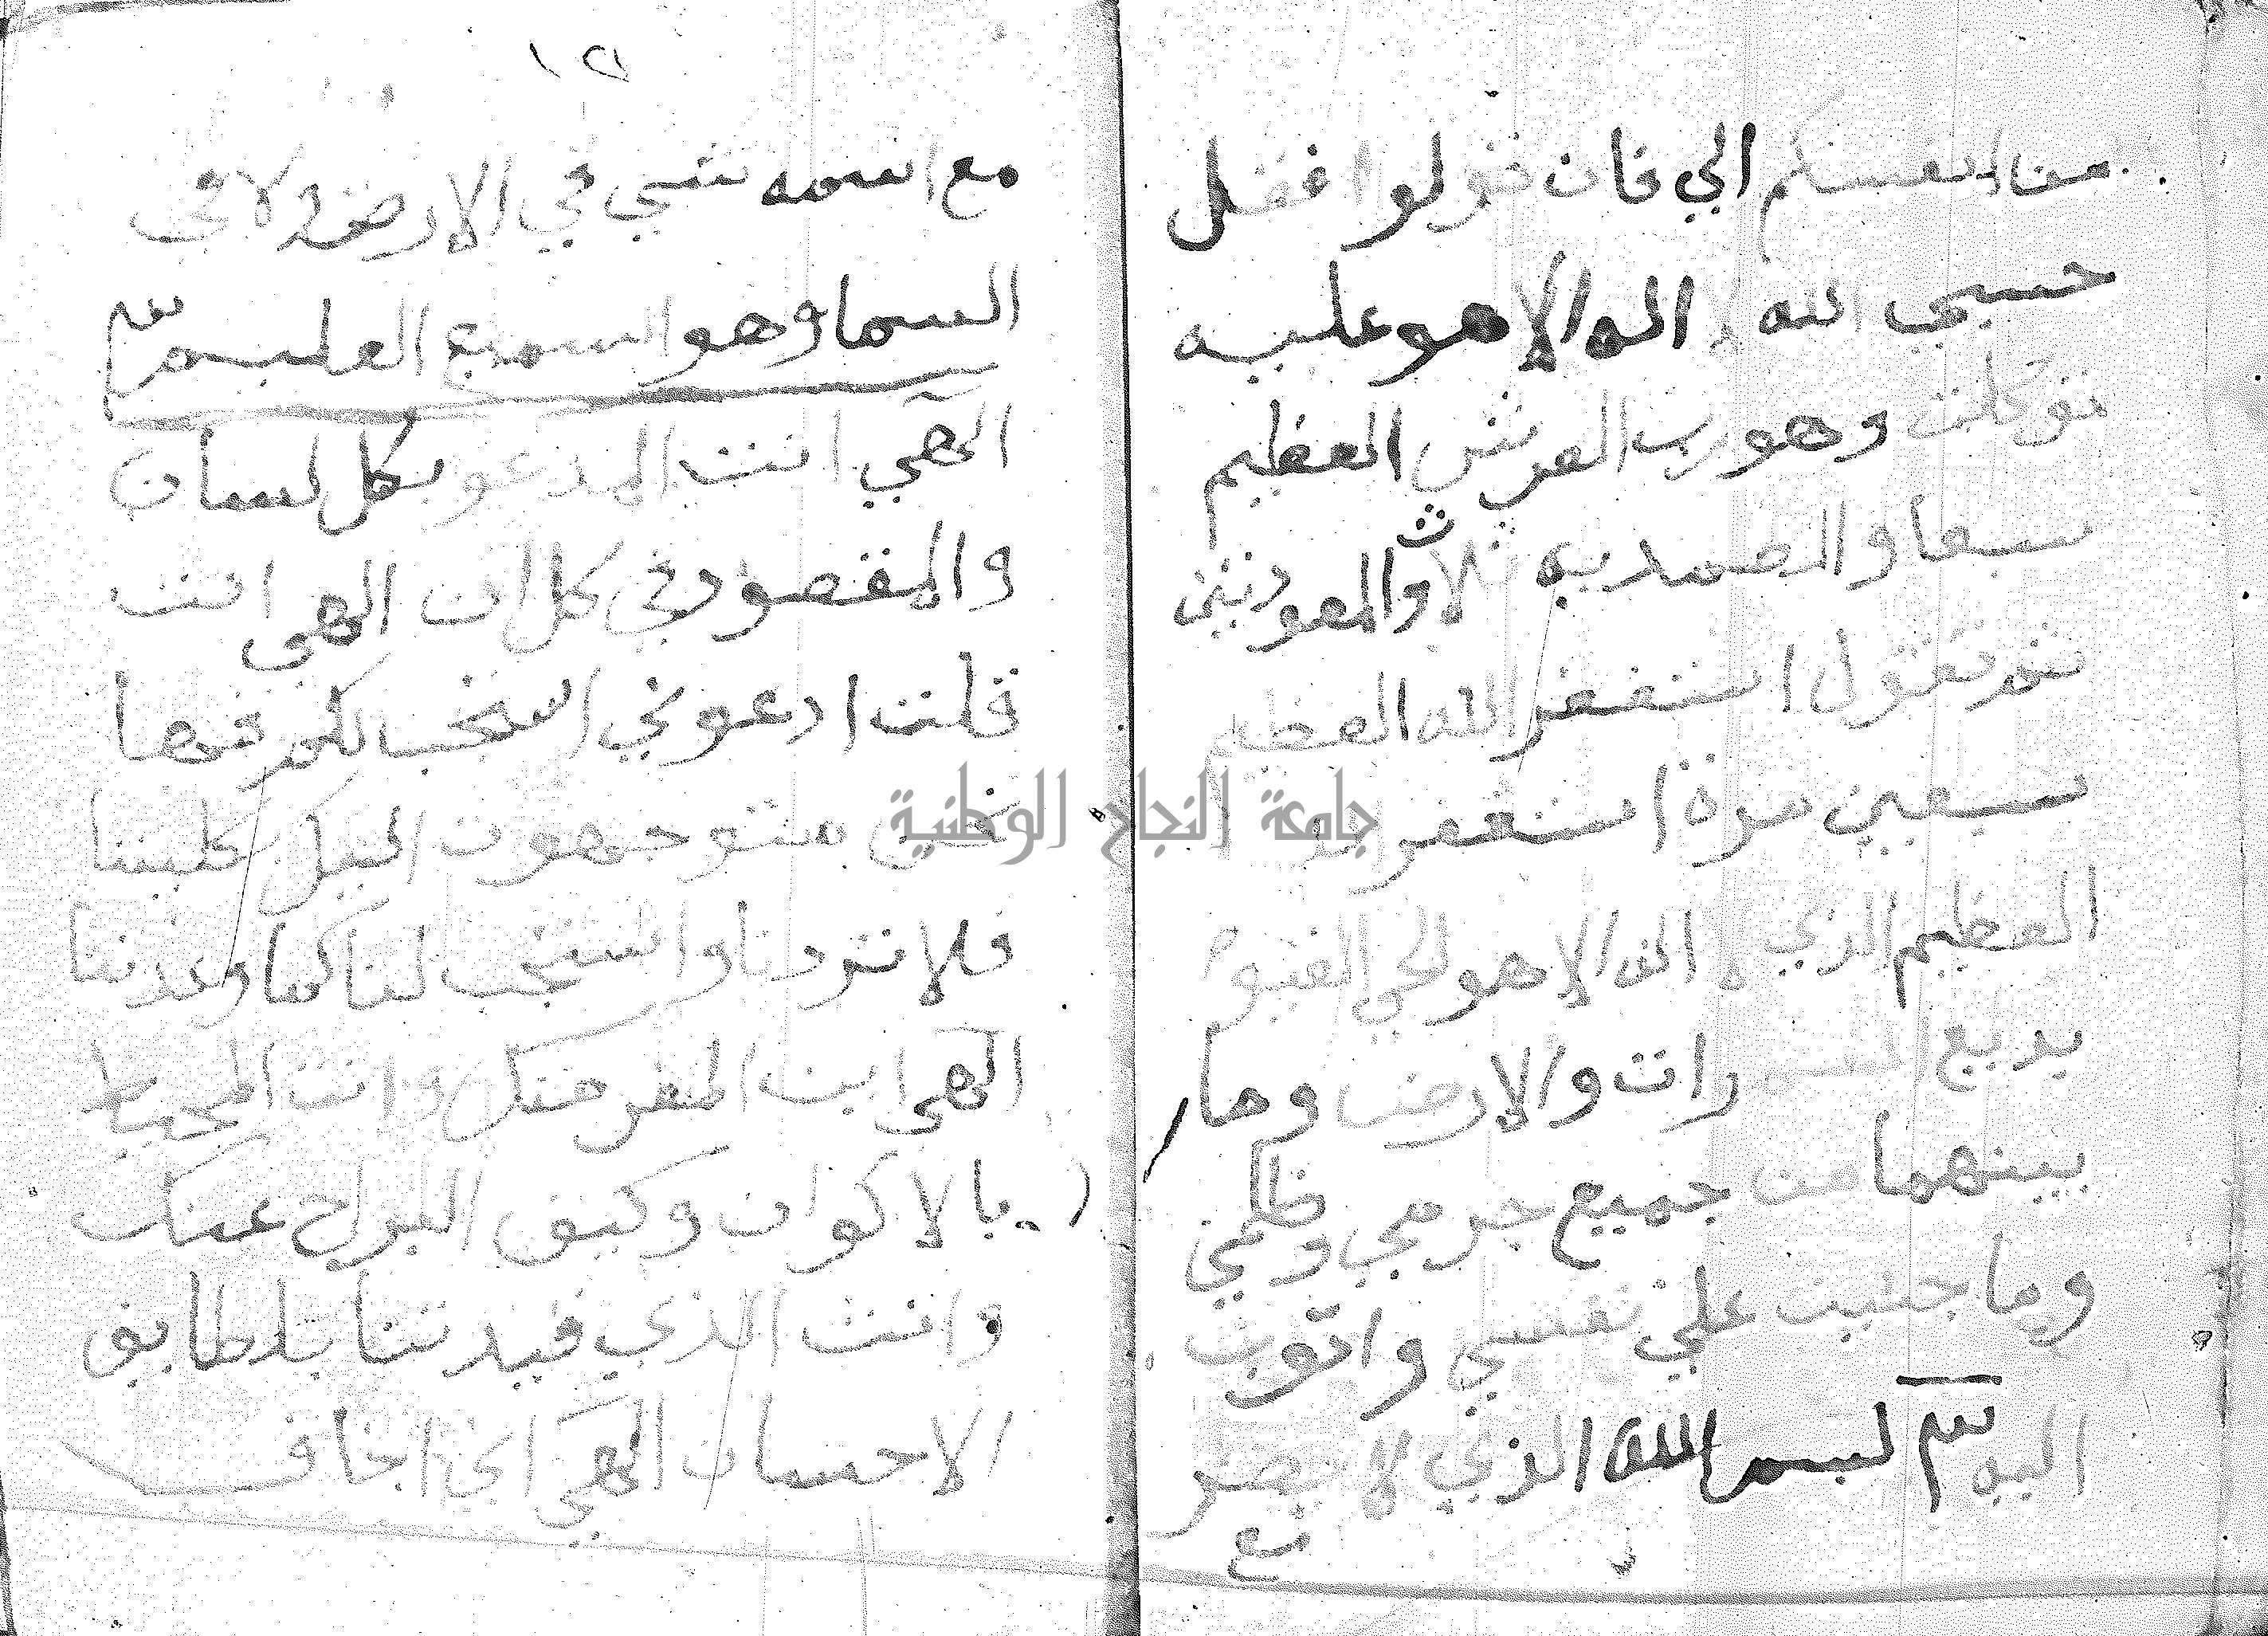 من انفسكم الي فان تولوا فقل
حسبي الله لا اله الا هو عليه
توكلت وهو رب العرش العظيم
سبعا والصمديه ثلاث والمعودتين
ثم تقول استغفر الله العظيم
سبعين مرة استغفر الله
العظيم الذي لا اله الا هو الحي القيوم
بديع السموات والارض وما
بينهما من جميع جرمي وظلمي
وما جنيت علي نفسي واتوب
اليه بسم الله الذي لا يضر
مع
١٢
مع اسمه شي في الارض ولا في
السما وهو السميع العليم
الهي انت المدعو بكل لسان
والمقصود في كل ان الهي انت
قلت ادعوني استجب لكم فها
نحن متوجهون اليك بكليتنا
فلا تردنا واستجب لنا كما وعدتنا
الهي اين المفر منك وانت المحيط
بالاكوان وكيف البراح عنك
وانت الذي قيدتنا بلطايف
الاحسان الهي اني اخاف
جامعة النجاح الوطنية